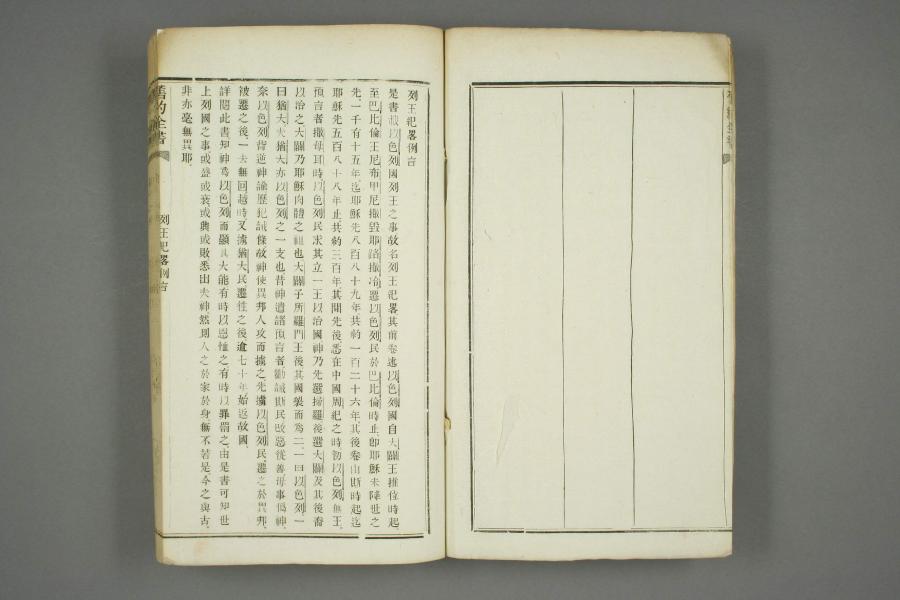 列王紀畧例言
是書載以色列國列王之事故名列王紀畧其前卷述以色列國自大闢王推位時起、
至巴比倫王尼布甲尼撒毀耶路撒冷遷以色列民於巴比倫時止卽耶穌未降世之
先、一千有十五年迄耶穌先八百八十九年共約一百二十六年其後卷由斯時起迄
耶穌先五百八十八年止共約三百年其間先後悉在中國周紀之時初以色列無王、
預言者撒母耳時以色列民求其立一王以治國神乃先選掃羅後選大闢及其後裔
以治之大闢乃耶穌肉體之祖也大闢子所羅門王後其國裂而爲二、一曰以色列一
曰猶大夫猶大亦以色列之一支也昔神遣諸預言者勸誡斯民改惡從善毋事僞神、
奈以色列背逆神諭歷犯誡條故神使異邦人攻而擄之先擄以色列民遷之於異邦、
被遷之後、一去無回越時又擄猶大民遷徃之後逾七十年始返故國、
詳閱此書知神爲以色列而顯其大能有時以恩恤之有時以罪罰之、由是書可知世
上列國之事或盛或衰或興或敗悉出夫神然則人之於家於身無不若是今之與古、
非亦毫無異耶、
舊約全書
列王紀畧例言